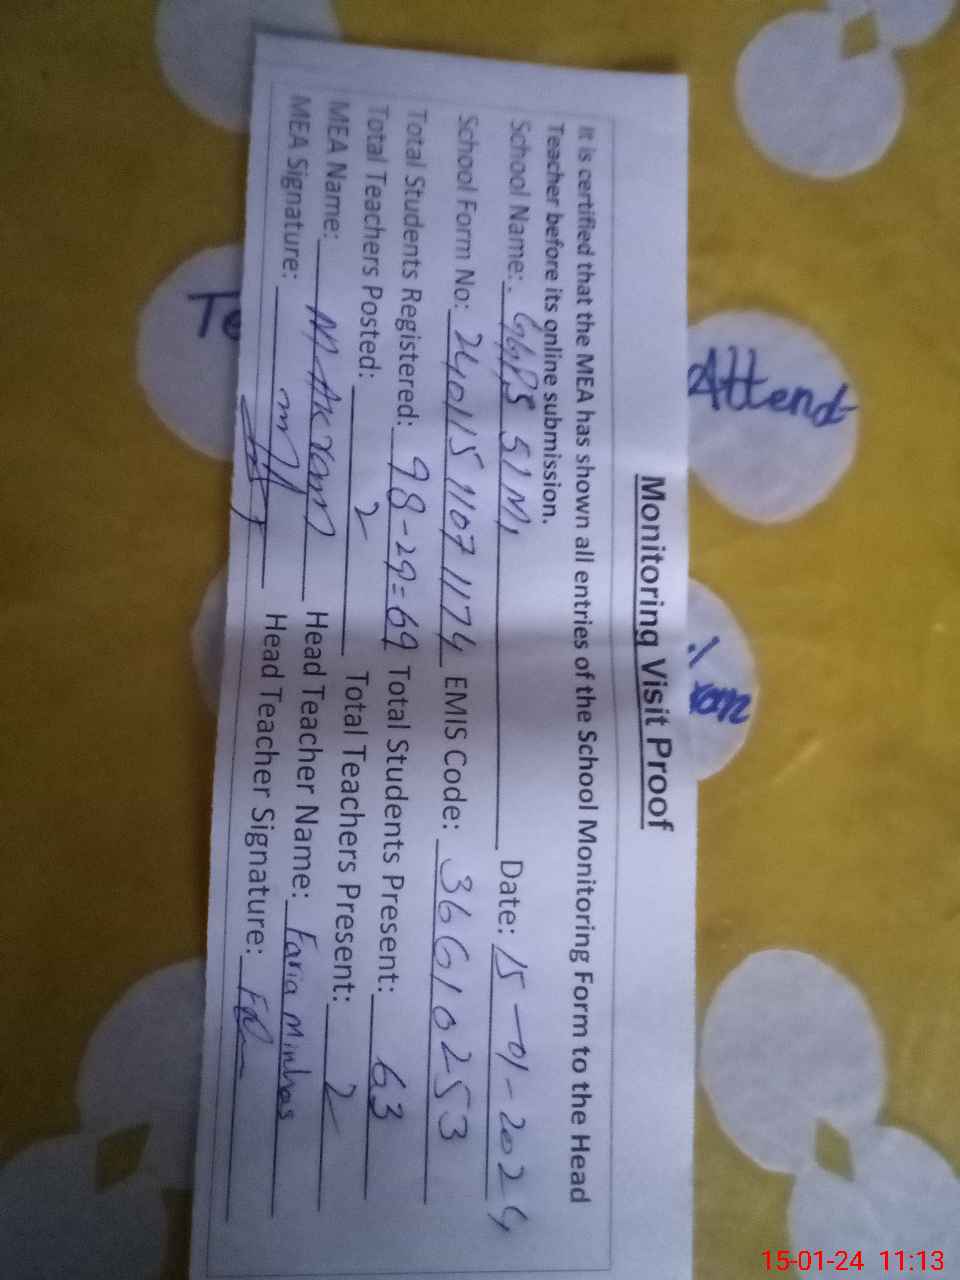 Monitoring Visit Proof
It is certified that the MEA has shown all entries of the School Monitoring Form to the Head
Teacher before its online submission.
School Name: GGPS 51 M, Date: 15-01-2024
School Form No: 240115 1107 1174 EMIS Code: 36610253
Total Students Registered: 98-29=69 Total Students Present: 63
Total Teachers Posted: 2 Total Teachers Present: 2
MEA Name: M Akram Head Teacher Name: Faria Minhas
MEA Signature: Head Teacher Signature:
Attend
To
15-01-24 11:13